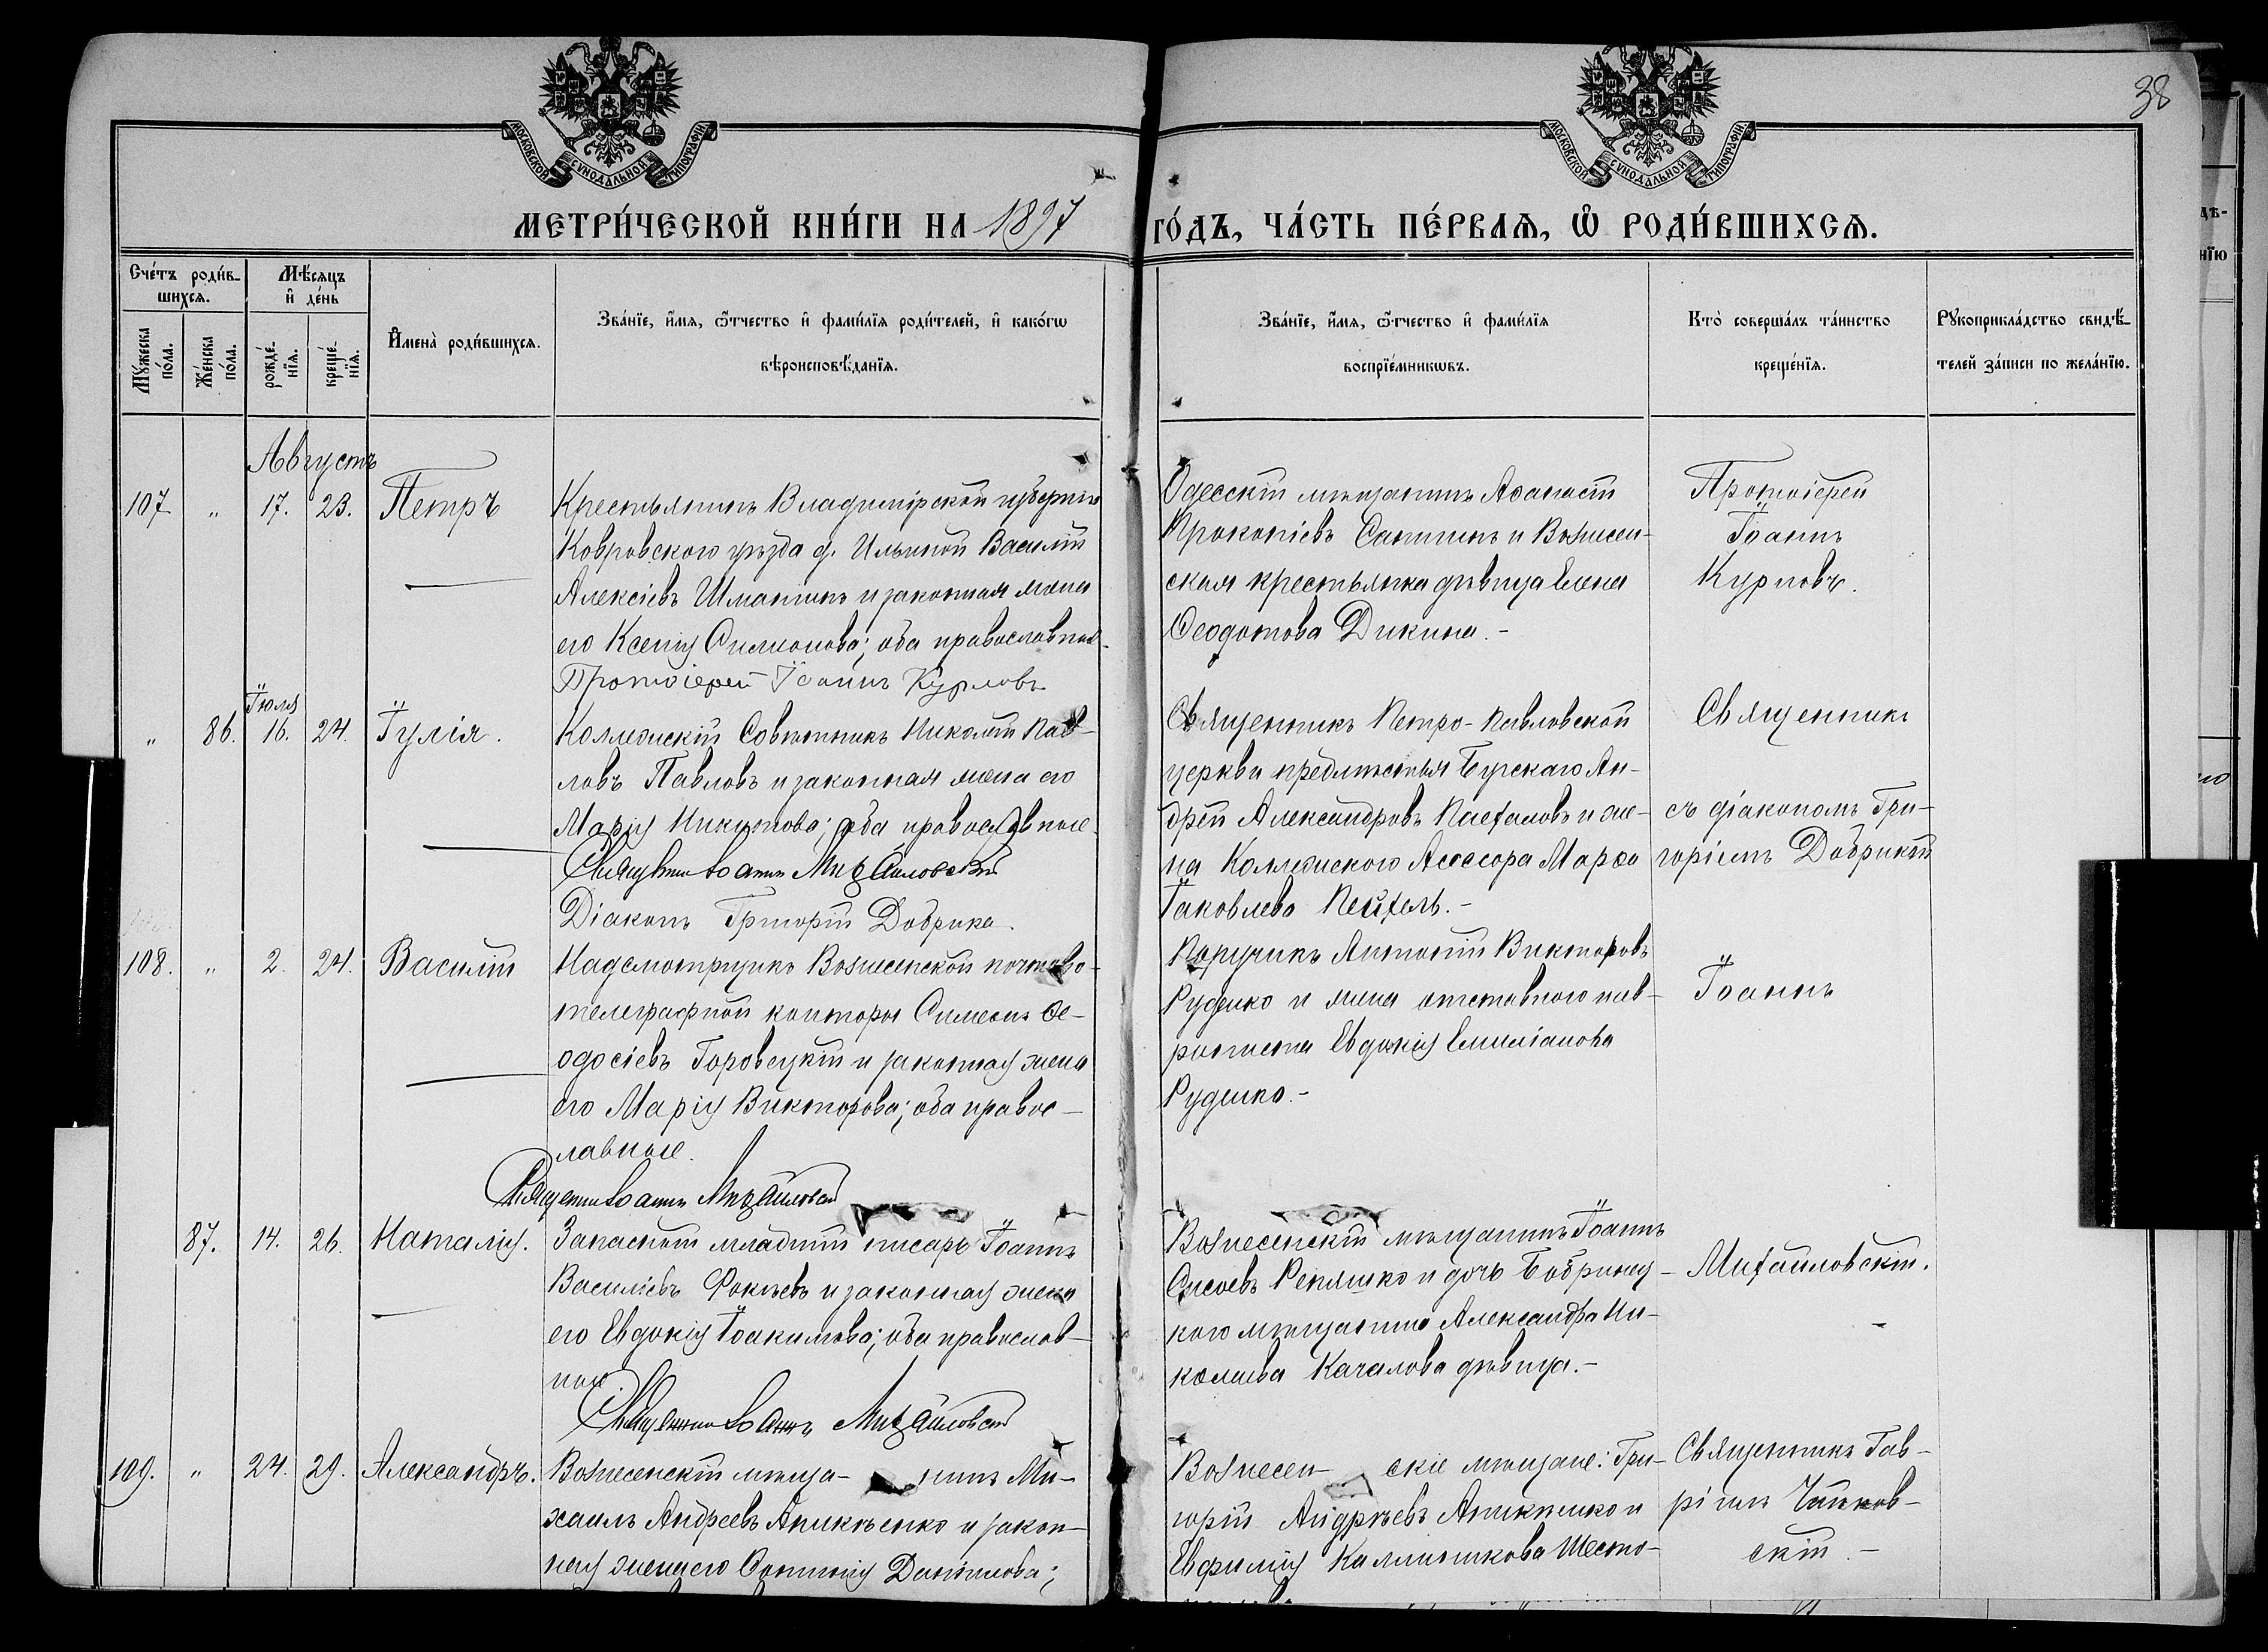 38
МОСКОВСКОЙ СѴНОДАЛЬНОЙ ТИПОГРАФІИ
МОСКОВСКОЙ СѴНОДАЛЬНОЙ ТИПОГРАФІИ
МЕТРИ́ЧЕСКОЙ КНИ́ГИ НА 1897 ГО́ДЪ, ЧА́СТЬ ПЕ́РВАѦ, Ѽ РОДИ́ВШИХСѦ.
Сче́тъ роди́в-
шихсѧ.
Мꙋ́жеска по́ла.
Же́нска по́ла.
Мѣ́сѧцъ
и҆ де́нь
рожде́-
нїѧ.
креще́-
нїѧ.
И҆мена̀ роди́вшихсѧ.
Зва́нїе, и҆́мѧ, ѻ҆́тчество и҆ фами́лїѧ роди́телей, и҆ како́гѡ
вѣроисповѣ́данїѧ.
Зва́нїе, и҆́мѧ, ѻ҆́тчество и҆ фами́лїѧ
воспрїе́мникѡвъ.
Кто̀ соверша́лъ та́инство
креще́нїѧ.
Рꙋкоприкла́дство свидѣ́-
телей за́писи по жела́нїю.
Августъ
107 " 17. 23. Петръ
Крестьянинъ Владимірской губерніи
Ковровского уѣзда д. Ильиной Василій
Алексіевъ Шмакинъ и законная жена
его Ксенія Симеонова; оба православные
Протоіерей Іоаннъ Курловъ
Одесскій мѣщанинъ Аѳанасій
Прокопіевъ Санинъ и Вознесен-
ская крестьянка дѣвица Елена
Ѳеодотова Дикина.-
Протоіерей
Іоаннъ
Курловъ.
" 86. Іюля 16. 24. Іулія.
Коллежскій Совѣтникъ Николай Пав-
ловъ Павловъ и законная жена его
Марія Никитова; оба православные.
Священникъ Іоаннъ Михайловскій
Діаконъ Григорій Добрика.
Священникъ Петро-Павловской
церкви предмѣстья Бугскаго Ан-
дрей Александровъ Пасхаловъ и же-
на Коллежского Асессора Марѳа
Іаковлева Пейхель.-
Священникъ
съ діакономъ Гри-
горіемъ Добрикой
108. " 2. 24. Василій
Надсмотрщикъ Вознесенской почтово-
телеграфной конторы Симеонъ Ѳе-
одосіевъ Горовецкій и законная жена
его Марія Викторова; оба правос-
лавные.
Священникъ Іоаннъ Михайловскій
Поручикъ Антоній Викторовъ
Руденко и жена отставного
Евдокія Емиліанова
Руденко.-
Іоаннъ
87. 14. 26. Наталія.
Запасный младшій писарь Іоаннъ
Василіевъ Фокѣевъ и законная жена
его Евдокія Іоакимова; оба православ-
ные.
Священникъ Іоаннъ Михайловскій
Вознесенскій мѣщанинъ Іоаннъ
Сисоевъ Репяшко и дочь Бобринец-
кого мѣщанина Александра Ни-
колаева Качалова дѣвица.-
Михайловскій.
109. " 24. 29. Александръ.
Вознесенскій мѣща- нинъ Ми-
хаилъ Андреевъ Аникѣенко и закон-
ная жена его Данiилова;
Вознесен- скіе мѣщане: Гри-
горій Андрѣевъ Аникѣенко и
Евфимія Каллиникова Шесто-
Священникъ Гав-
ріилъ
скій.-